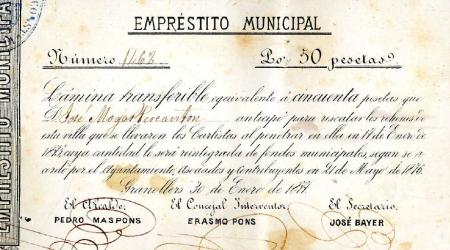 EMPRÉSTITO MUNICIPAL
EMPRÉSTITO MUNICIPAL
Número 1463 Por 50 pesetas.
Lámina transferible equivalente á cincuenta pesetas que
D. José Mogas anticipó para rescatar los rehenes de
esta villa que se llevaron los Carlistas al penetrar en ella en 17 de Enero de
cuya cantidad le será reintegrada de fondos municipales segun se a-
cordó por el Ayuntamiento, Asociados y Contribuyentes en 21 de Mayo de 1876.
Granollers 30 de Enero de 1877
El Alcalde. El Concejal Interventor. El Secretario.
PEDRO MASPONS ERASMO PONS JOSÉ BAYER